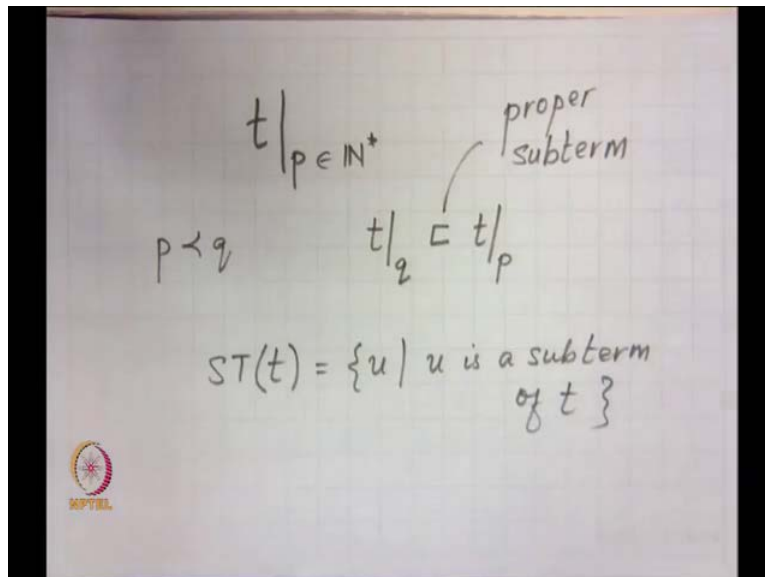 t|p ∈ ℕ*
proper
subterm
p ≺ q t|q ⊏ t|p
ST(t) = {u | u is a subterm
of t }
NPTEL